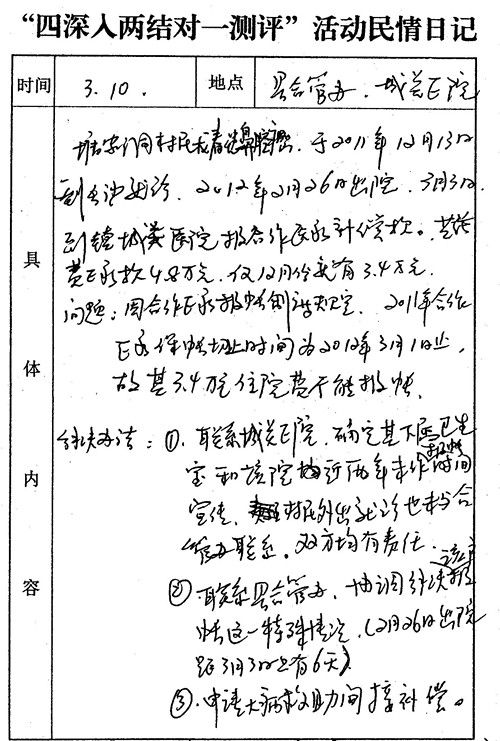 “四深入两结对一测评”活动民情日记
时间 3.10. 地点 县合管办、城关医院
具体内容
塘家门同村民 患鼻腔癌,于2011年12月13日
到长沙就诊,2012年2月26日出院,3月3日
到镇城关医院报合作医疗补偿款。共
费医疗款4.8万元,仅12月份就有3.4万元.
问题:因合作医疗报帐制 规定,2011年合作
医疗保帐截止时间为2012年3月1日止,
故其3.4万元住院费不能报帐。
解决办法:①.联系城关医院,确定其下属卫生
室和该院 近两年未作报帐时间
宣传,村民外出就诊也未与合
管办联系。双方均有责任.
②联系县合管办,协调解决该户报
帐这一特殊情况,(2月26日出院
距3月3日只有6天)
③.申请大病救助间接补偿。